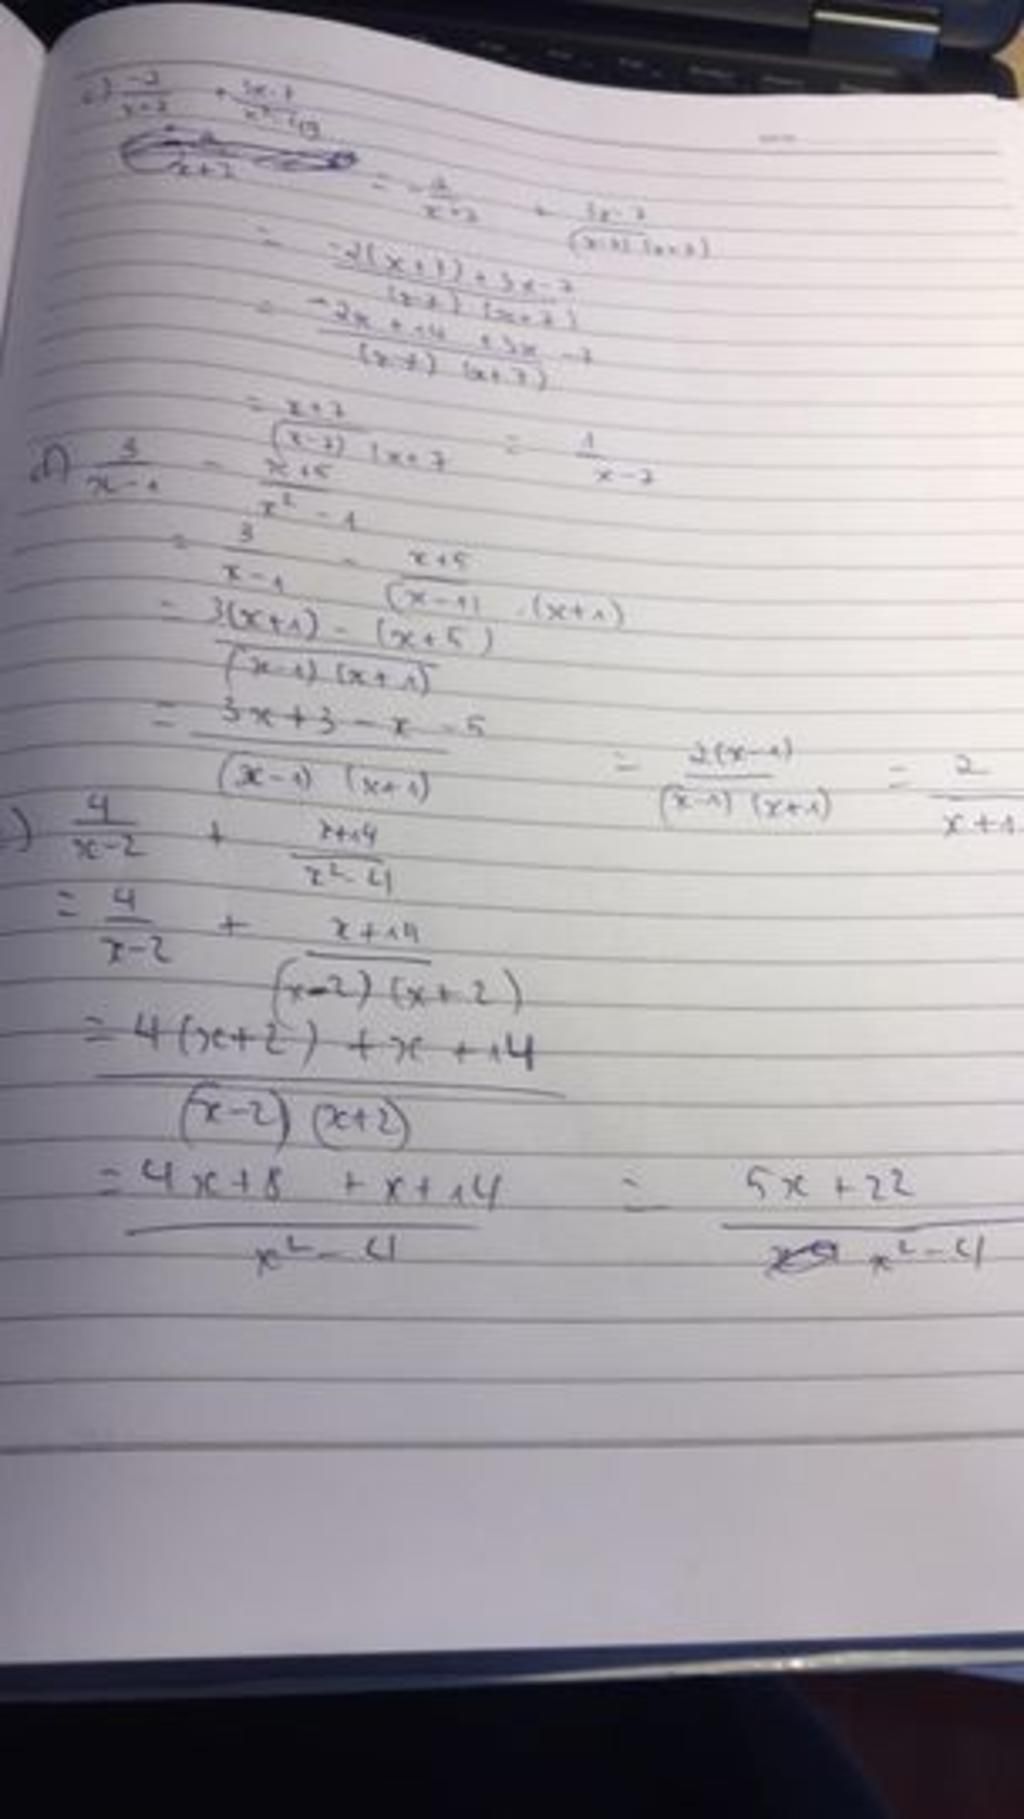 = -2/(x+7) + (3x-7)/((x-7)(x+7))
= (-2x+14 +3x -7)/((x-7) (x+7))
= (x+7)/((x-7) (x+7 = 1/(x-7)
d) 3/(x-1) - (x+5)/(x² - 1)
= 3/(x-1) - (x+5)/((x-1) . (x+1))
= (3(x+1) - (x+5))/((x-1) (x+1))
= (3x+3 - x - 5)/((x-1) (x+1)) = (2(x-1))/((x-1) (x+1)) = 2/(x+1)
) 4/(x-2) + (x+14)/(x² - 4)
= 4/(x-2) + (x+14)/((x-2) (x+2))
= (4(x+2) + x + 14)/((x-2) (x+2))
= (4x+8 + x+14)/(x² - 4) = (5x + 22)/(x² - 4)